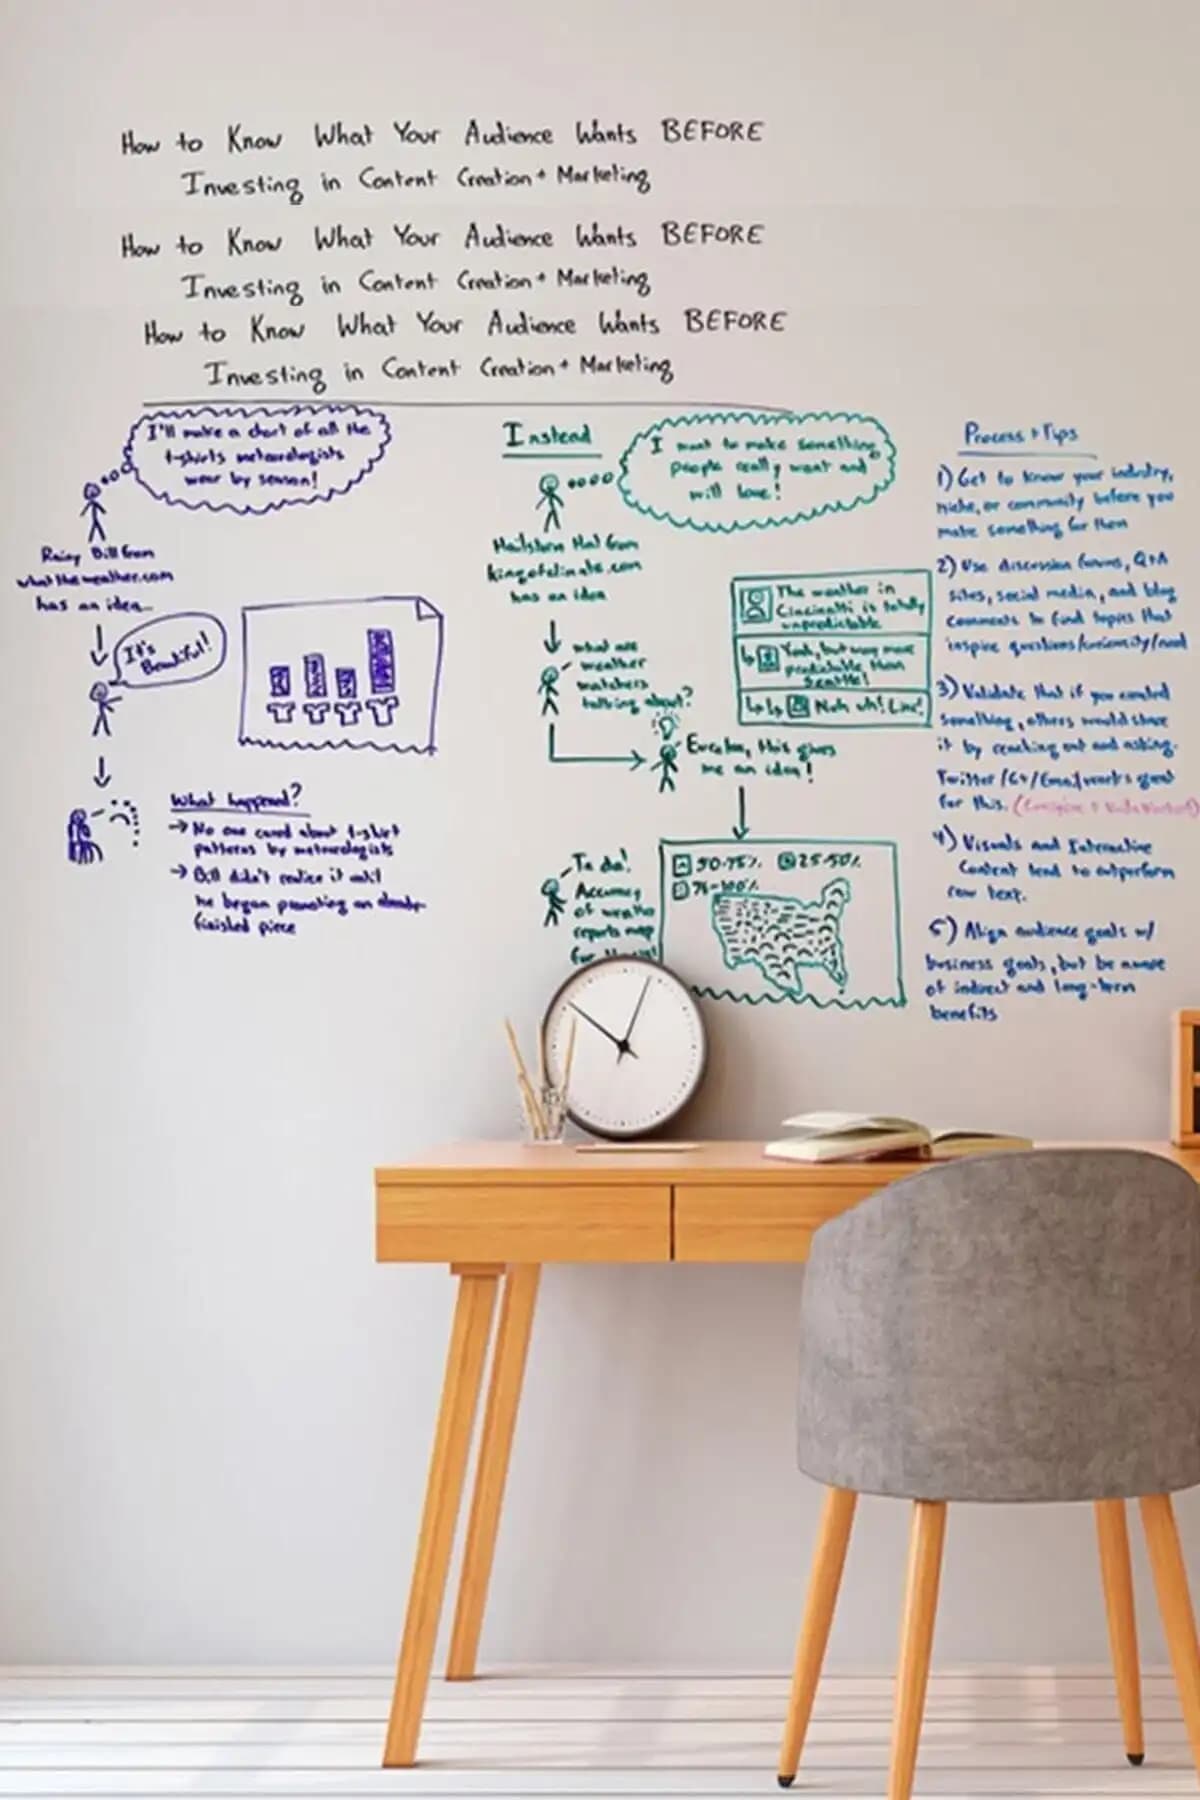 How to Know What Your Audience Wants BEFORE
Investing in Content Creation + Marketing
How to Know What Your Audience Wants BEFORE
Investing in Content Creation + Marketing
How to Know What Your Audience Wants BEFORE
Investing in Content Creation + Marketing
I'll make a chart of all the
t-shirts meteorologists
wear by season!
Rainy Bill from
whattheweather.com
has an idea...
It's
Beautiful!
What happened?
→ No one cared about t-shirt
patterns by meteorologists
→ Bill didn't realize it until
he began promoting an already
finished piece
Instead
I want to make something
people really want and
will love!
Hailstorm Hal from
kingofclimate.com
has an idea
what are
weather
watchers
talking about?
The weather in
Cincinatti is totally
unpredictable
Yeah, but way more
predictable than
Seattle!
Nuh uh! Liar!
Eureka, this gives
me an idea!
Ta da!
Accuracy
of weather
reports map
for the
50-75%
25-50%
76-100%
Process + Tips
1) Get to know your industry,
niche, or community before you
make something for them
2) Use discussion forums, Q+A
sites, social media, and blog
comments to find topics that
inspire questions/curiosity/need
3) Validate that if you created
something, others would share
it by reaching out and asking.
Twitter/G+/Email works great
for this.
4) Visuals and Interactive
Content tend to outperform
raw text.
5) Align audience goals w/
business goals, but be aware
of indirect and long-term
benefits